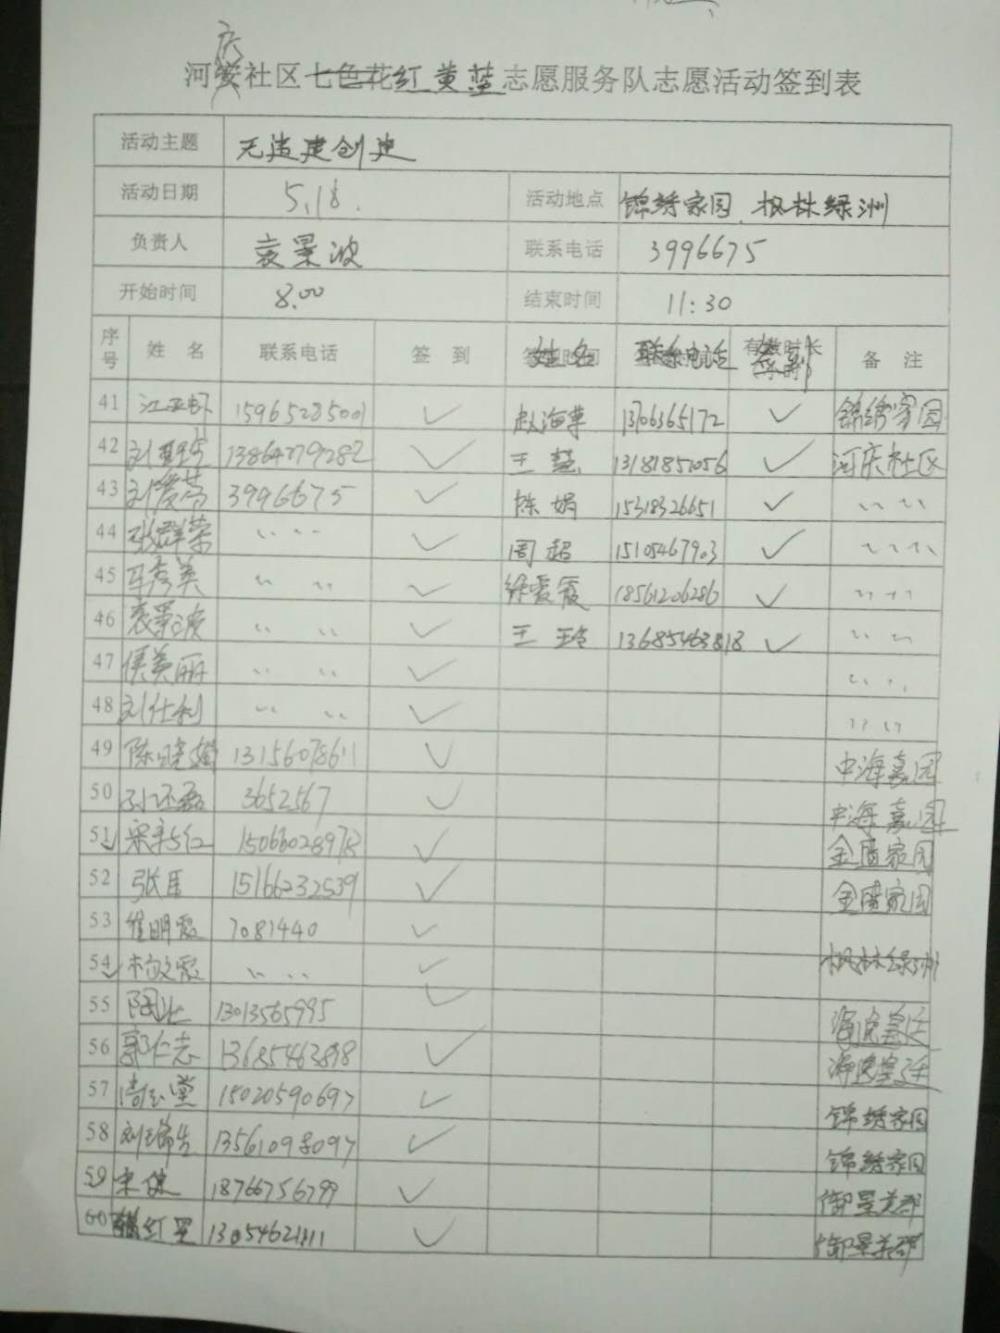 河庆社区七色花红黄蓝志愿服务队志愿活动签到表
活动主题 无违建创建
活动日期 5.18. 活动地点 锦绣家园、枫林绿洲
负责人 袁景波 联系电话 3996675
开始时间 8.00 结束时间 11:30
序号 姓 名 联系电话 签 到 姓名 联系电话 签到 备 注
41 15965285001 ✓ 赵海草 13706365172 ✓ 锦绣家园
42 13864779282 ✓ 王慧 13181851056 ✓ 河庆社区
43 刘爱芳 3996675 ✓ 陈娟 15318326651 ✓ 〃 〃
44 张群荣 〃 〃 ✓ 周超 15105467903 ✓ 〃 〃
45 马秀美 〃 〃 ✓ 徐爱霞 18561206286 ✓ 〃 〃
46 袁景波 〃 〃 ✓ 王玲 13685463818 ✓ 〃 〃
47 侯美丽 〃 〃 ✓ 〃 〃
48 刘仕利 〃 〃 ✓ 〃 〃
49 陈晓娟 13156078611 ✓ 中海嘉园
50 3652567 ✓ 中海嘉园
51 15066028978 ✓ 金盾家园
52 张臣 15166232539 ✓ 金盾家园
53 崔明霞 7081440 ✓
54 杨文霞 〃 〃 ✓ 枫林绿洲
55 13013565995 ✓
56 郭仁志 13685463898 ✓
57 周玉堂 15020590697 ✓ 锦绣家园
58 刘瑞生 13561098097 ✓ 锦绣家园
59 宋健 18766756799 ✓ 御景美郡
60 红星 13054621111 ✓ 御景美郡